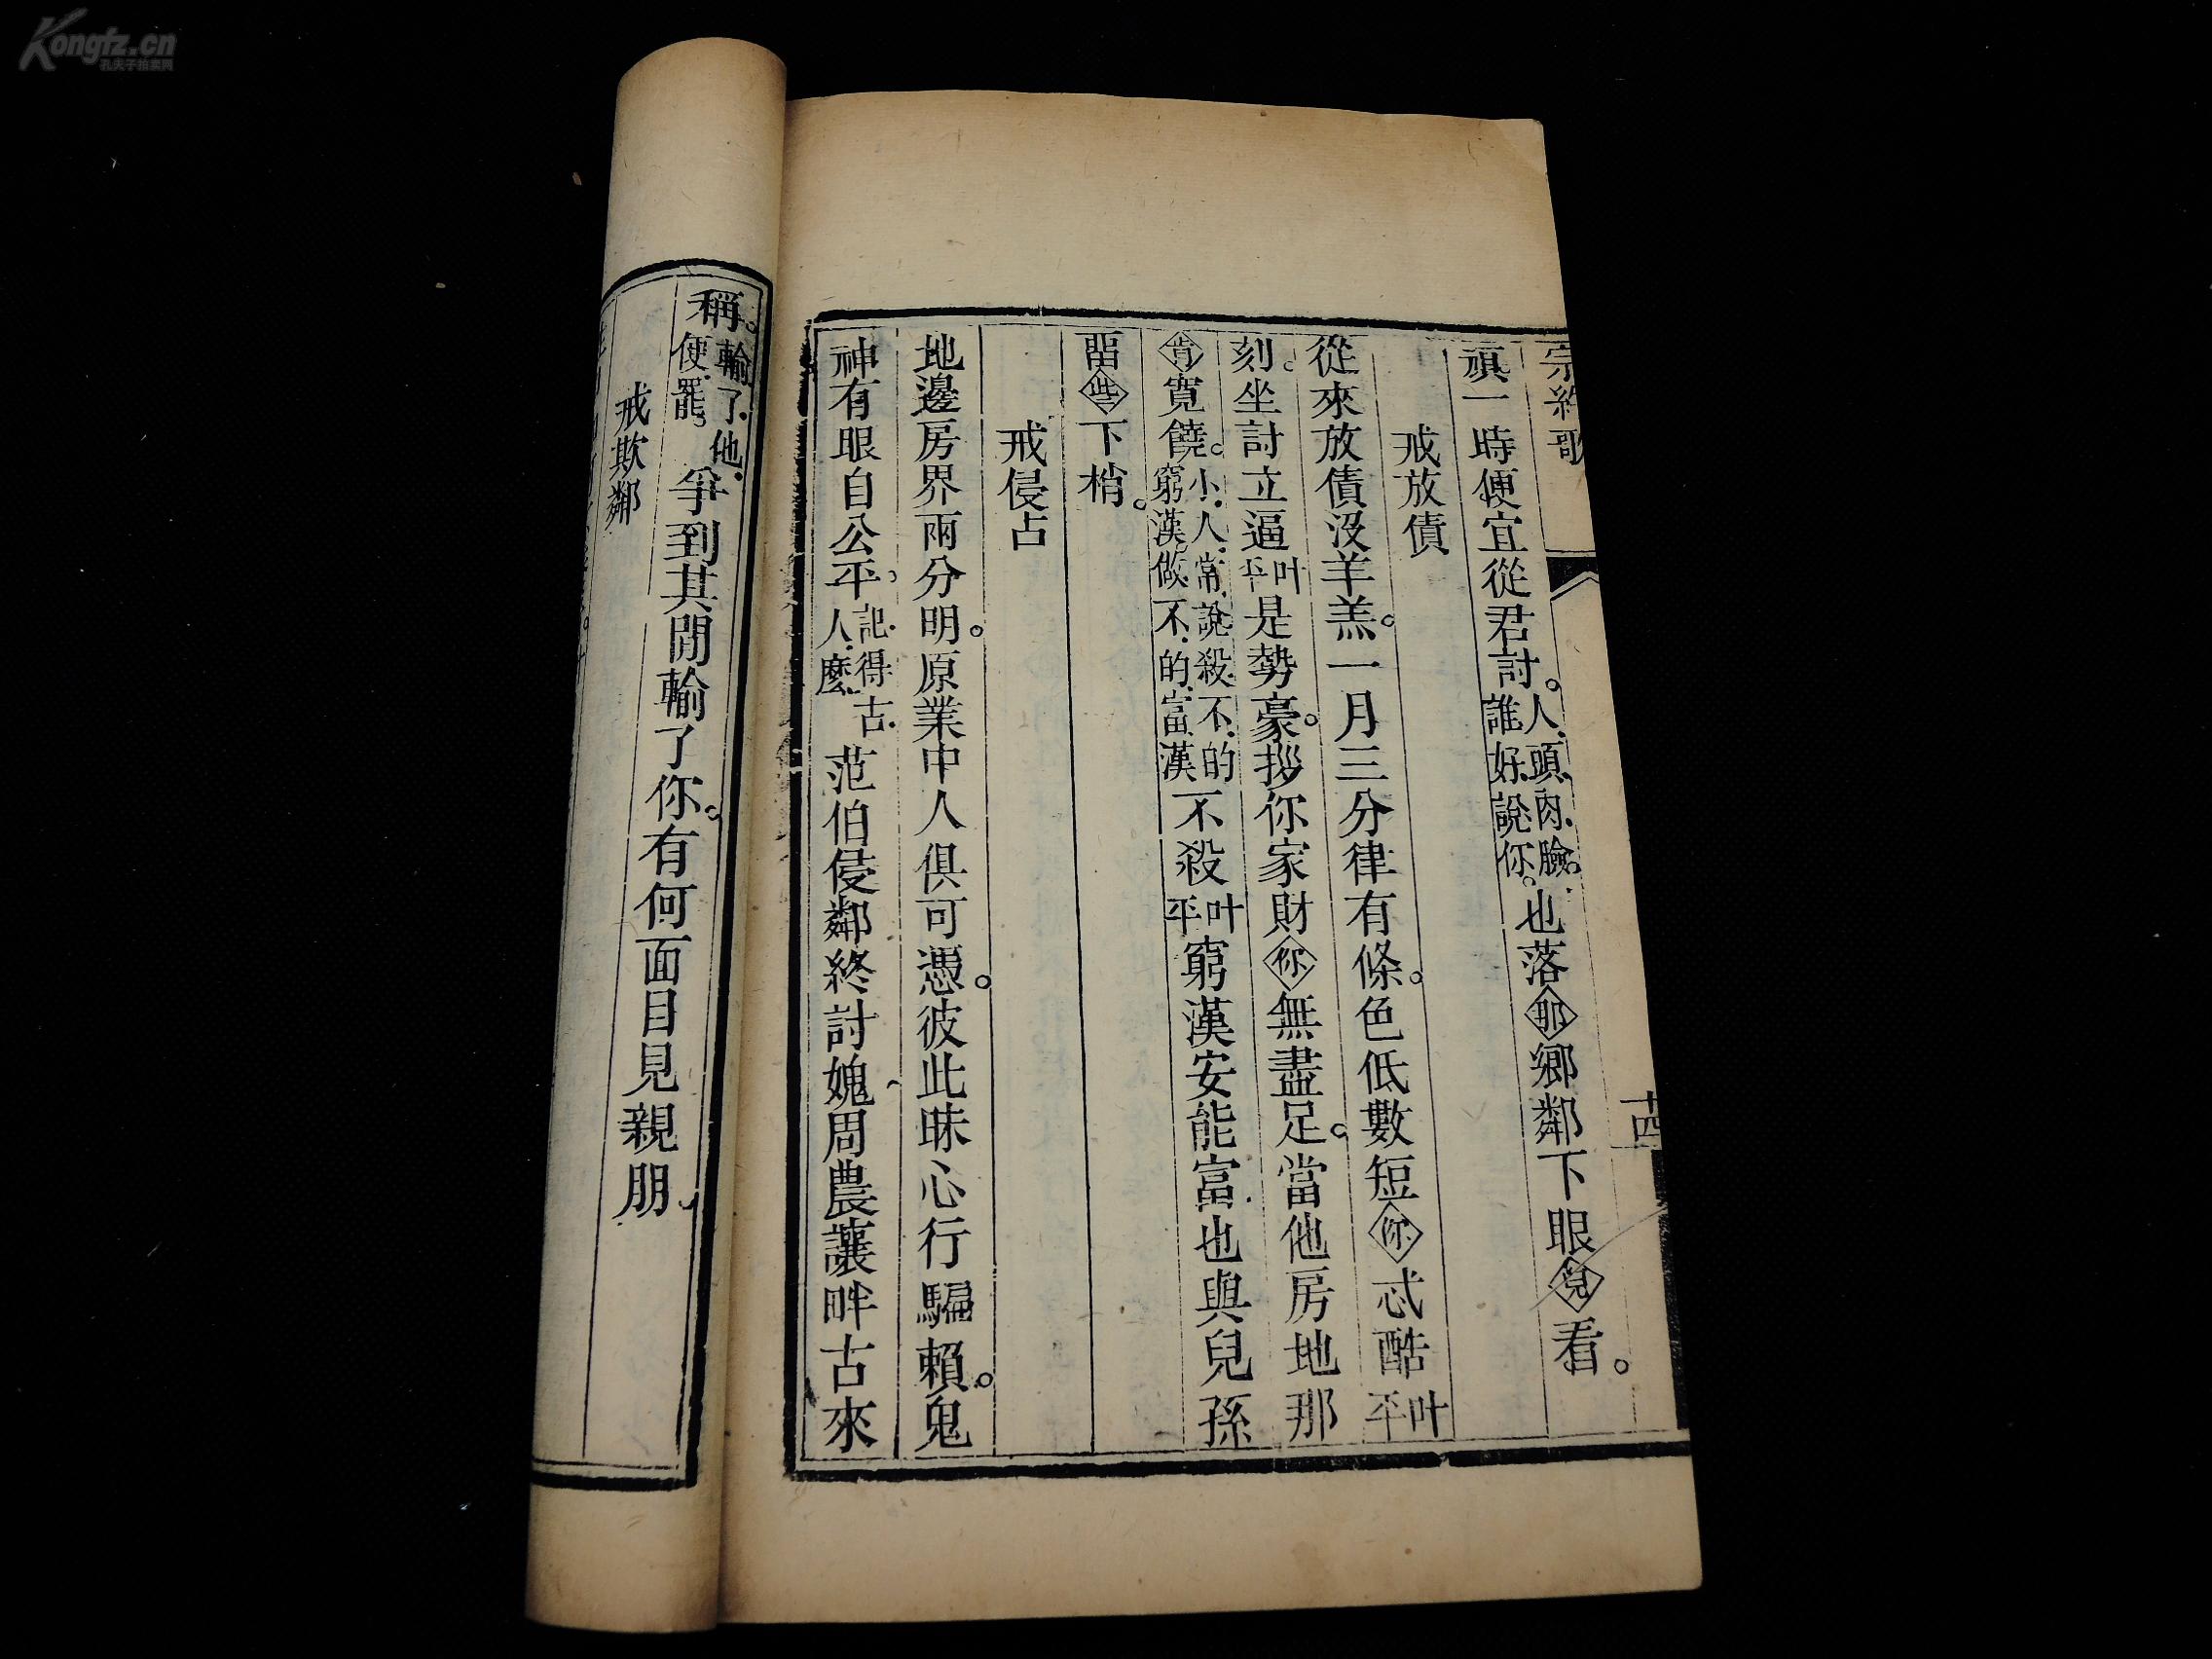 Kongfz.cn
孔夫子拍卖网
宗約歌
十四
禛一時便宜從君討。人頭肉臉。誰好說你。也落那鄉鄰下眼兒看。
戒放債
從來放債沒羊羔。一月三分律有條。色低數短你忒酷叶平
刻。坐討立逼叶平是勢豪。拶你家財你無盡足。當他房地那
肯寬饒。小人常說殺不的窮漢做不的富漢不殺叶平窮漢安能富也與兒孫
畱些下梢。
戒侵占
地邊房界兩分明。原業中人俱可憑。彼此昧心行騙賴。鬼
神有眼自公平。記得古人麼范伯侵鄰終討媿周農讓畔古來
稱。輸了他便罷爭到其閒輸了你。有何面目見親朋
戒欺鄰